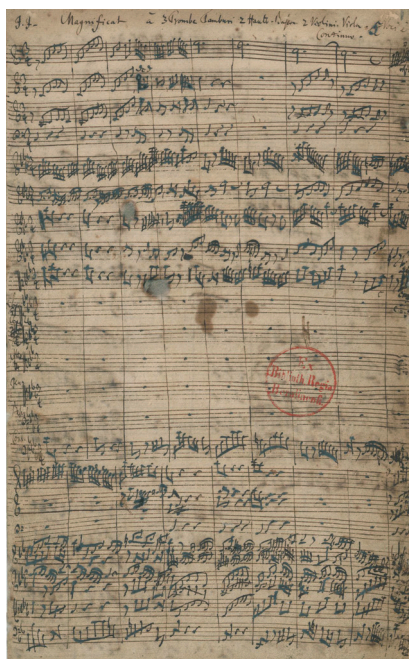 J. J. Magnificat à 3 Trombe Tamburi 2 Hautb. 2 Violini Viola
Continuo.
Ex
Biblioth. Regia
Berolinensi